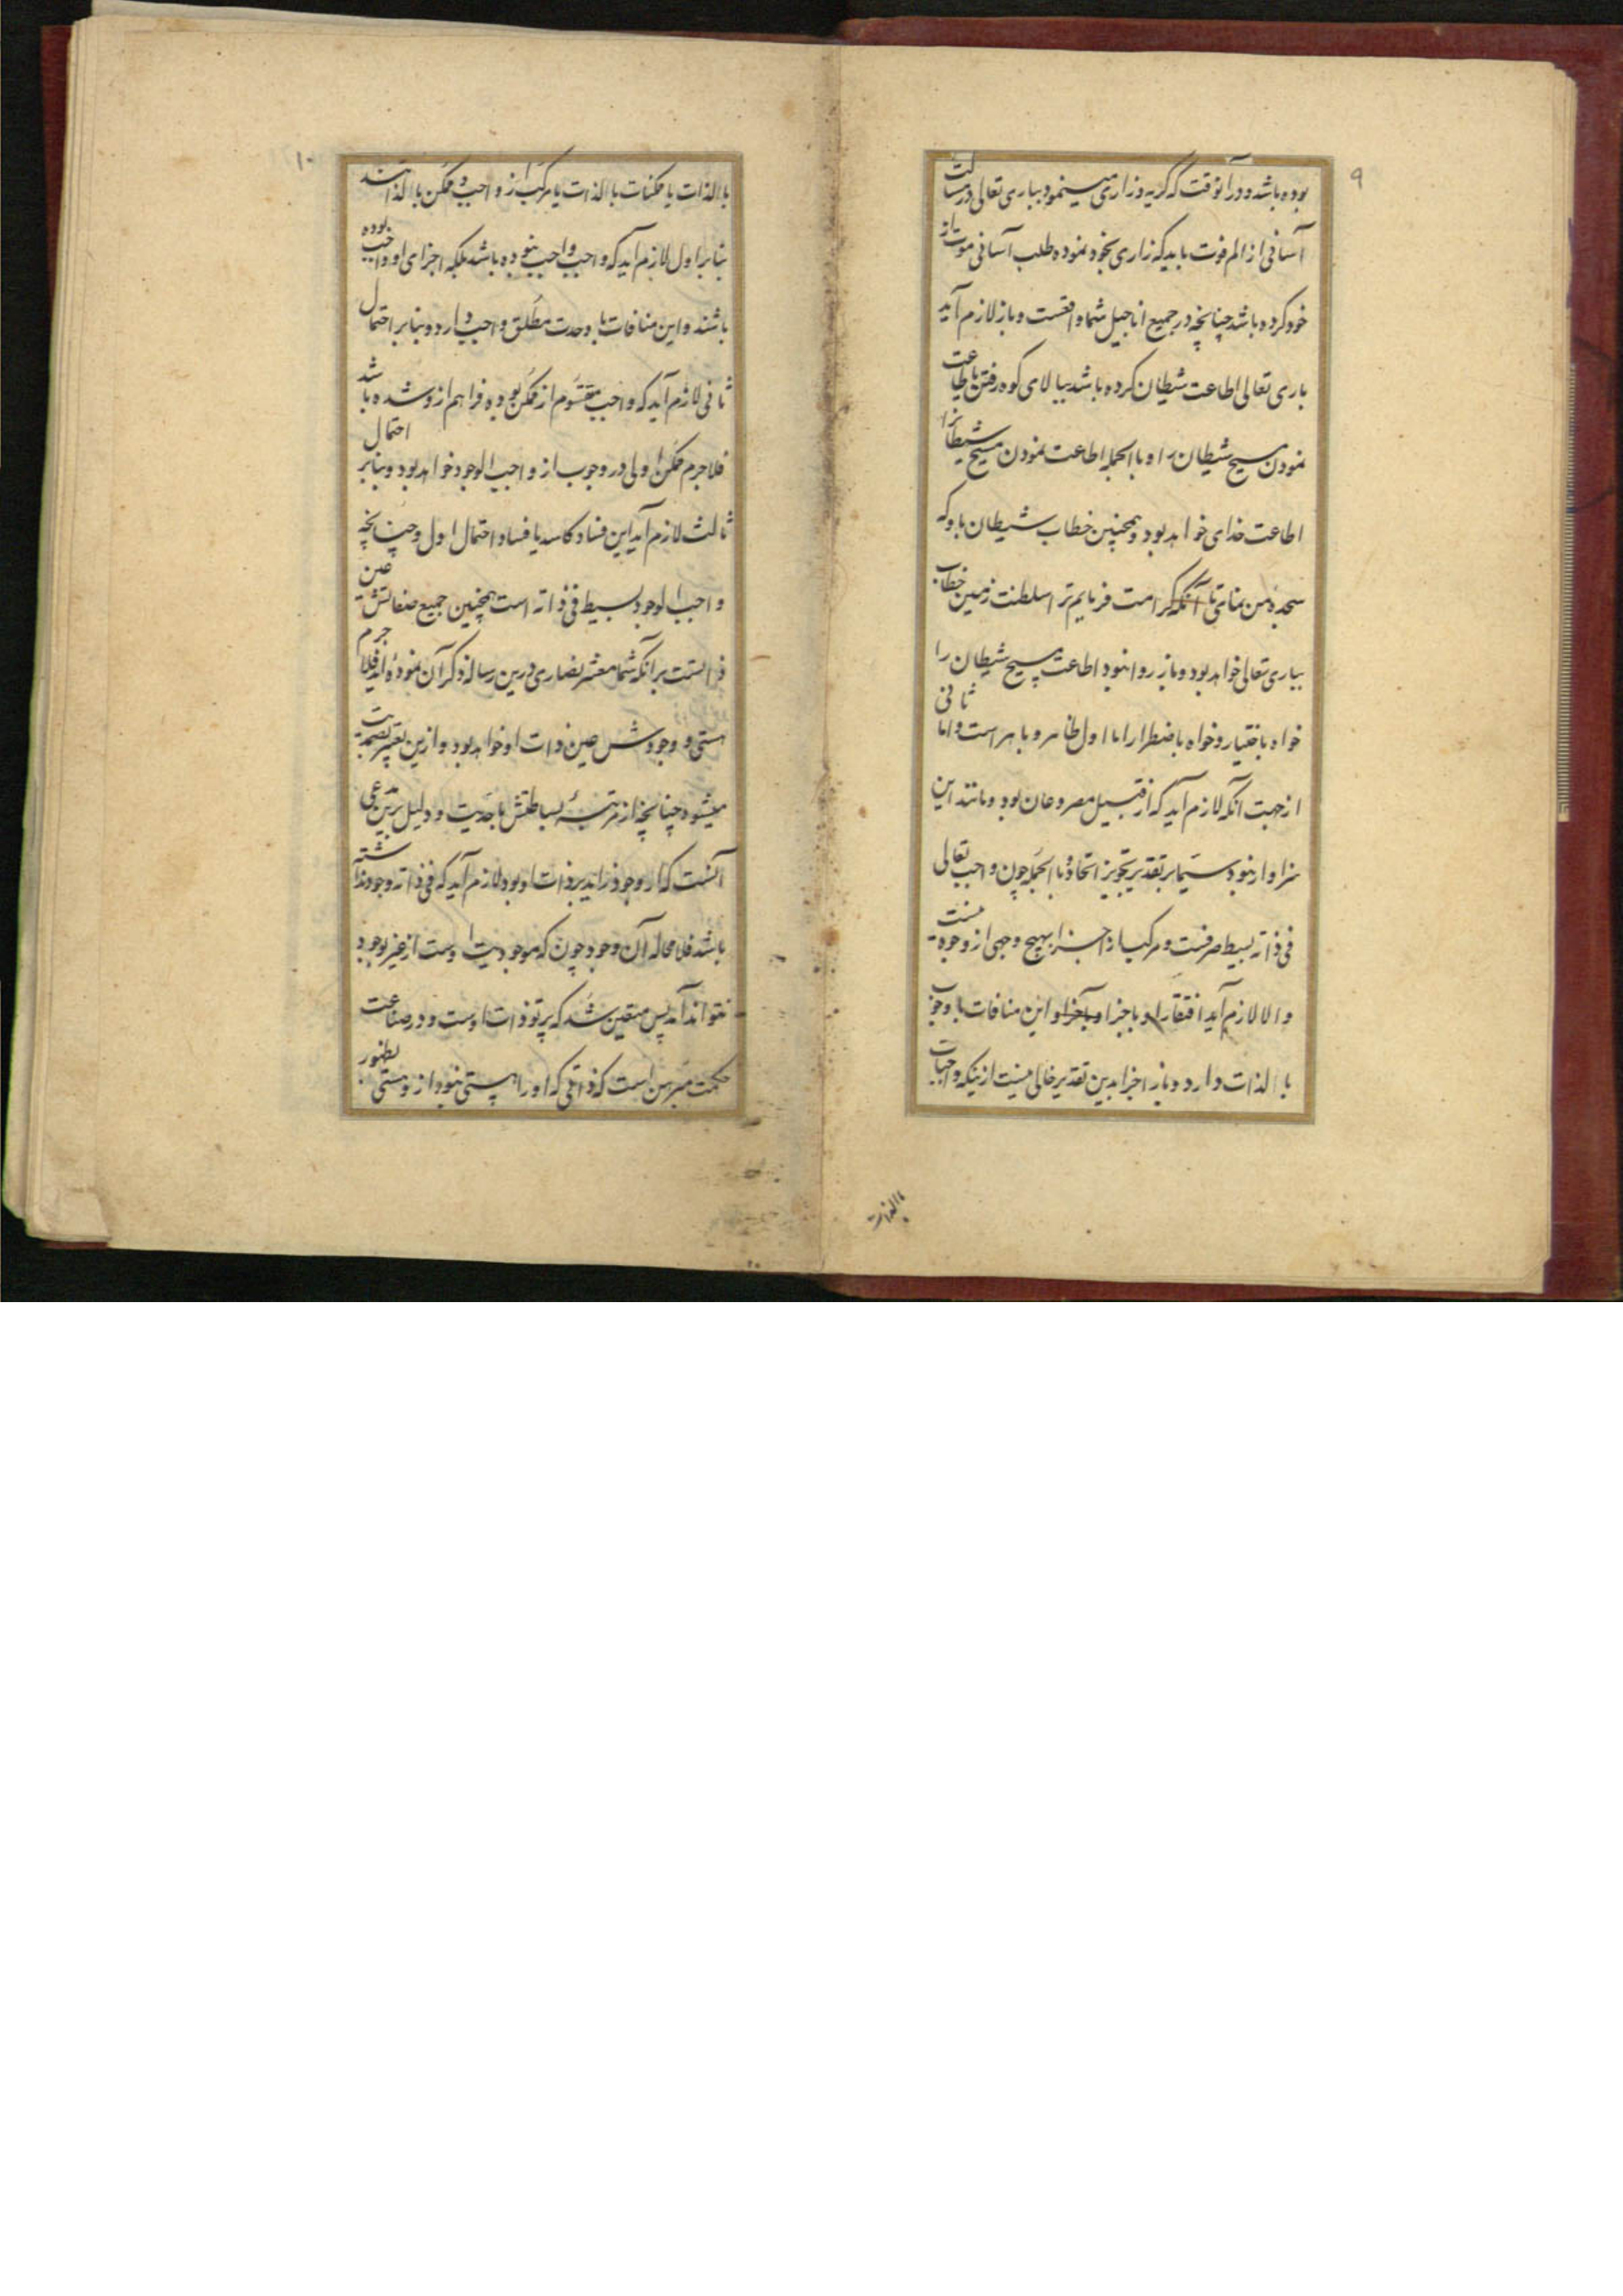 ۹
بوده باشد و در آنوقت که گریه و زاری مینمود بباری تعالی در مسالت
آسانی از الم فوت باید که زاری بخود نموده طلب آسانی موت از
خود کرده باشد چنانچه در جمیع اناجیل شما واقعست و باز لازم آید
باری تعالی اطاعت شیطان کرده باشد ببالای کوه رفتن باطاعت
نمودن مسیح شیطان را و باالجمله اطاعت نمودن مسیح شیطانرا
اطاعت خدای خواهد بود و همچنین خطاب شیطان باو که
سجده من بنمای تا آنکه کرامت فرمایم ترا سلطنت زمین خطاب
بباری تعالی خواهد بود و باز روا نبود اطاعت مسیح شیطان را
خواه باختیار و خواه باضطرار اما اول ظاهر و باهر است و اما ثانی
از جهت آنکه لازم آید که از قبیل مصروعان بود و مانند این
سزاوار نبود سیما بر تقدیر تجویز اتحاد و باالجمله چون واجب تعالی
فی ذاته بسیط صرفست و مرکب از اجزا بهیچ وجهی از وجوه نیست
و الا لازم آید افتقار او باجزا و باخراو این منافات با وجوب
باالذات دارد و باز اجزا بدین تقدیر خالی نیست ازینکه واجبات
باالذات
۱۰
باالذات یا ممکنات باالذات یا مرکب از واجب و ممکن باالذاتند
بنابر اول لازم آید که واجب واجب نبوده باشد بلکه اجزای او واجب بوده
باشند و این منافات با وحدت مطلق واجب دارد و بنابر احتمال
ثانی لازم آید که واجب متقوم از ممکن بوده و فراهم ازو شده باشد
فلاجرم ممکن اولی در وجوب از واجب الوجود خواهد بود و بنابر احتمال
ثالث لازم آید این فساد کاسد یا فساد احتمال اول و چنانچه
واجب الوجود بسیط فی ذاته است همچنین جمیع صفاتش عین
ذاتست بر آنکه شما معشر نصاری درین رساله ذکر آن نموده اید فلاجرم
هستی و وجودش عین ذات او خواهد بود و ازین تعبیر بصمدیت
میشود چنانچه از مرتبهٔ بساطتش باحدیت و دلیل برین مدعی
آنست که اگر وجود زاید بر ذات او بود لازم آید که فی ذاته وجود نداشته
باشد فلا محاله آن وجود چون که موجودیت اوست از غیر بوجود
نتواند آمد پس متعین شد که پرتو ذات اوست و در صناعت
حکمت مبرهن است که ذاتی که او را هستی نبود ازو هستی بظهور